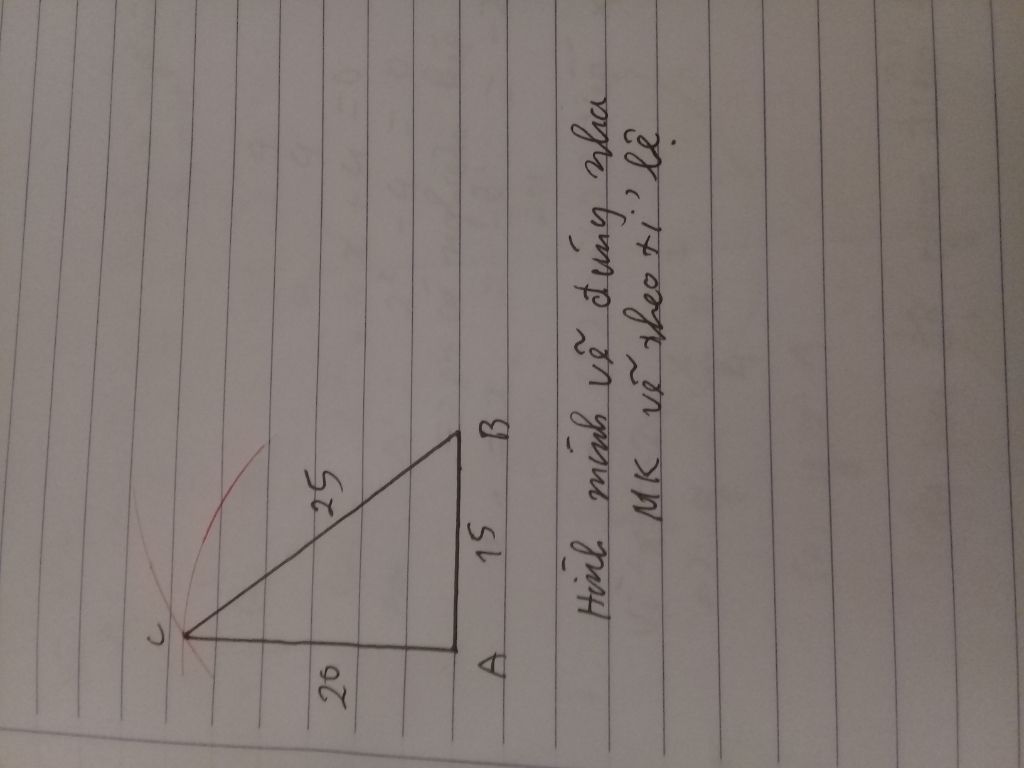 C
20
25
A
15
B
Hình mình vẽ đúng nha
MK vẽ theo tỉ lệ